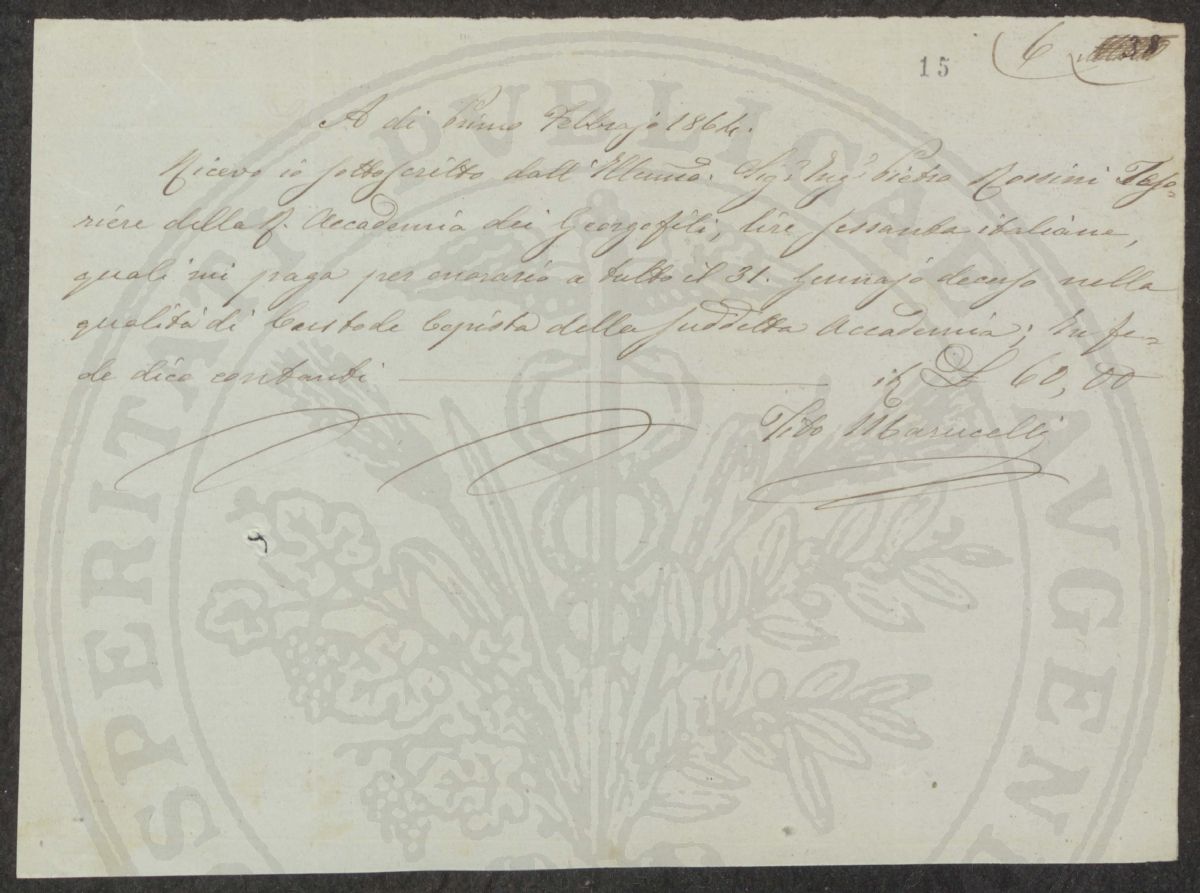 6
15
38
A di Primo Febbrajo 1864.
Ricevo io sottoscritto dall'Illmo. Sigr. Ingr. Pietro Rossini Teso-
riere della R. Accademia dei Georgofili, lire sessanta italiane,
quali mi paga per onorario a tutto il 31. Gennajo decorso nella
qualità di Custode Copista della suddetta Accademia; In fe-
de dico contanti — it £ 60,00
Tito Marucelli
PROSPERITATI PVBLICAE AVGENDAE